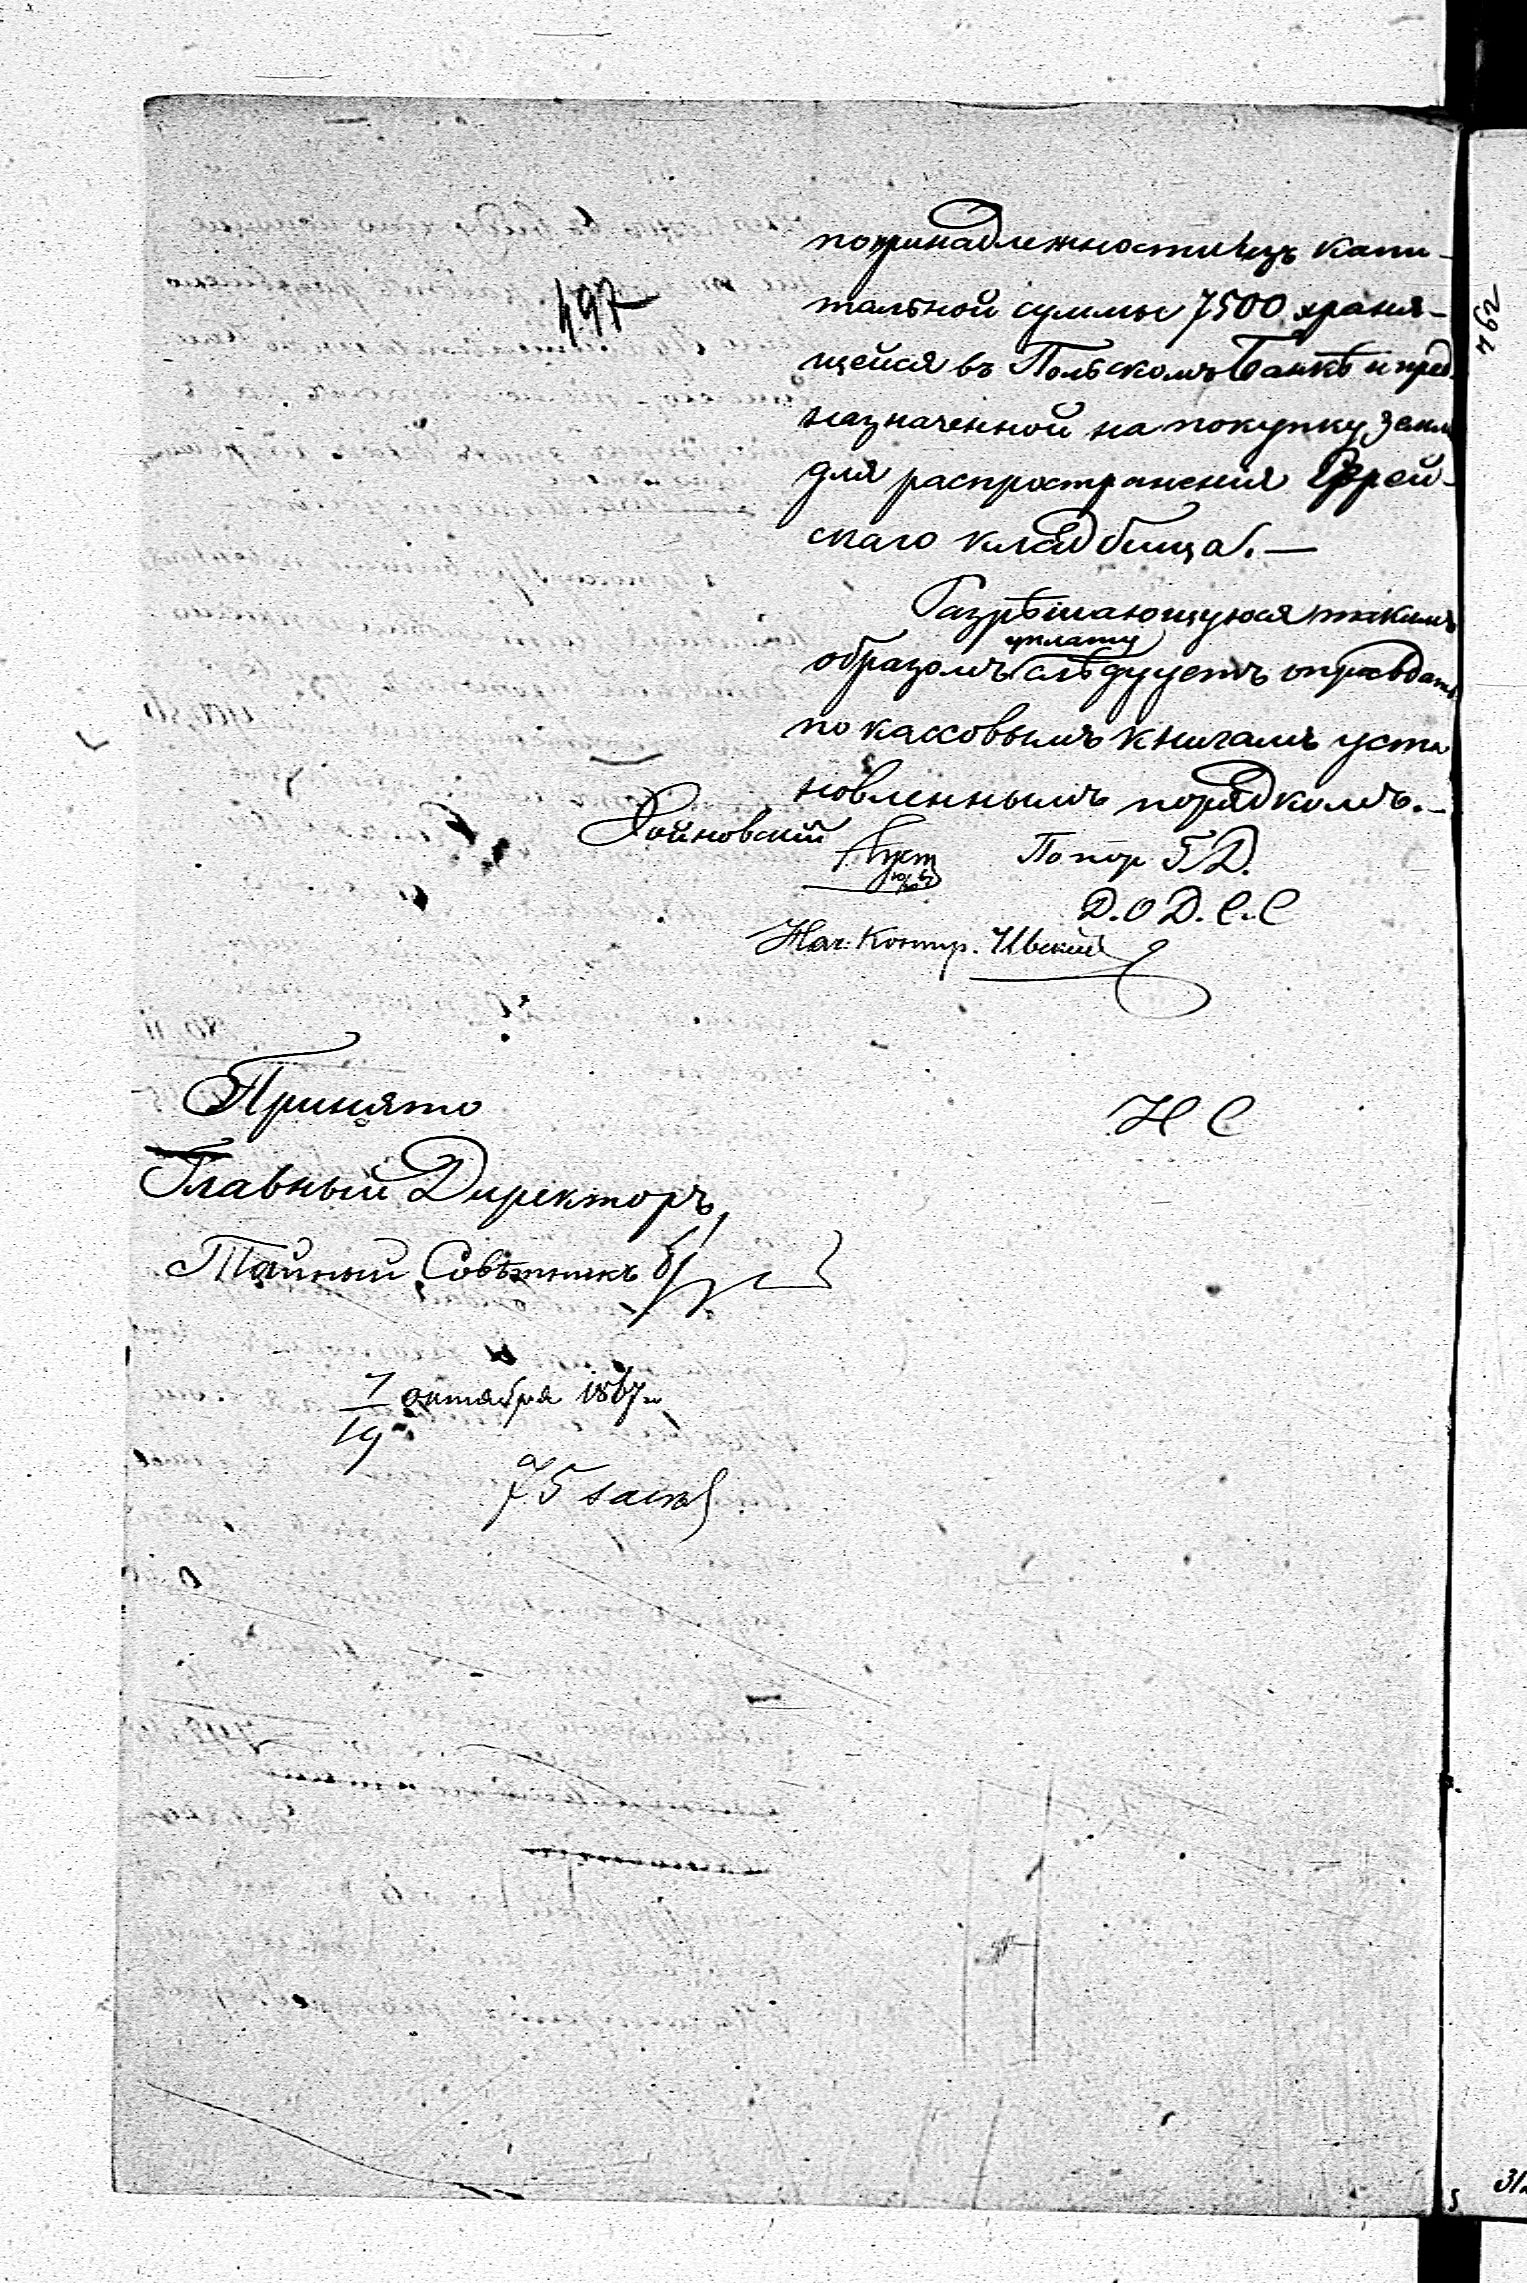 497
попринадлежности изъ капи-
тальной суммы 7500 храня-
щейся въ Польскомъ Банкѣ и пред
назначенной на покупку земли
для распространения Еврей-
скаго кладбища. —
Разрѣшающуюся такимъ
уплату
образомъ слѣдуетъ оправдать
по кассовымъ книгамъ уста
новленнымъ порядкомъ. —
По пор Г. Д.
Д. О Д. С. С
Нач. Контр.
Принято
Н С
Главный Директоръ,
Тайный Совѣтникъ
7/19 октября 1867 г.
294